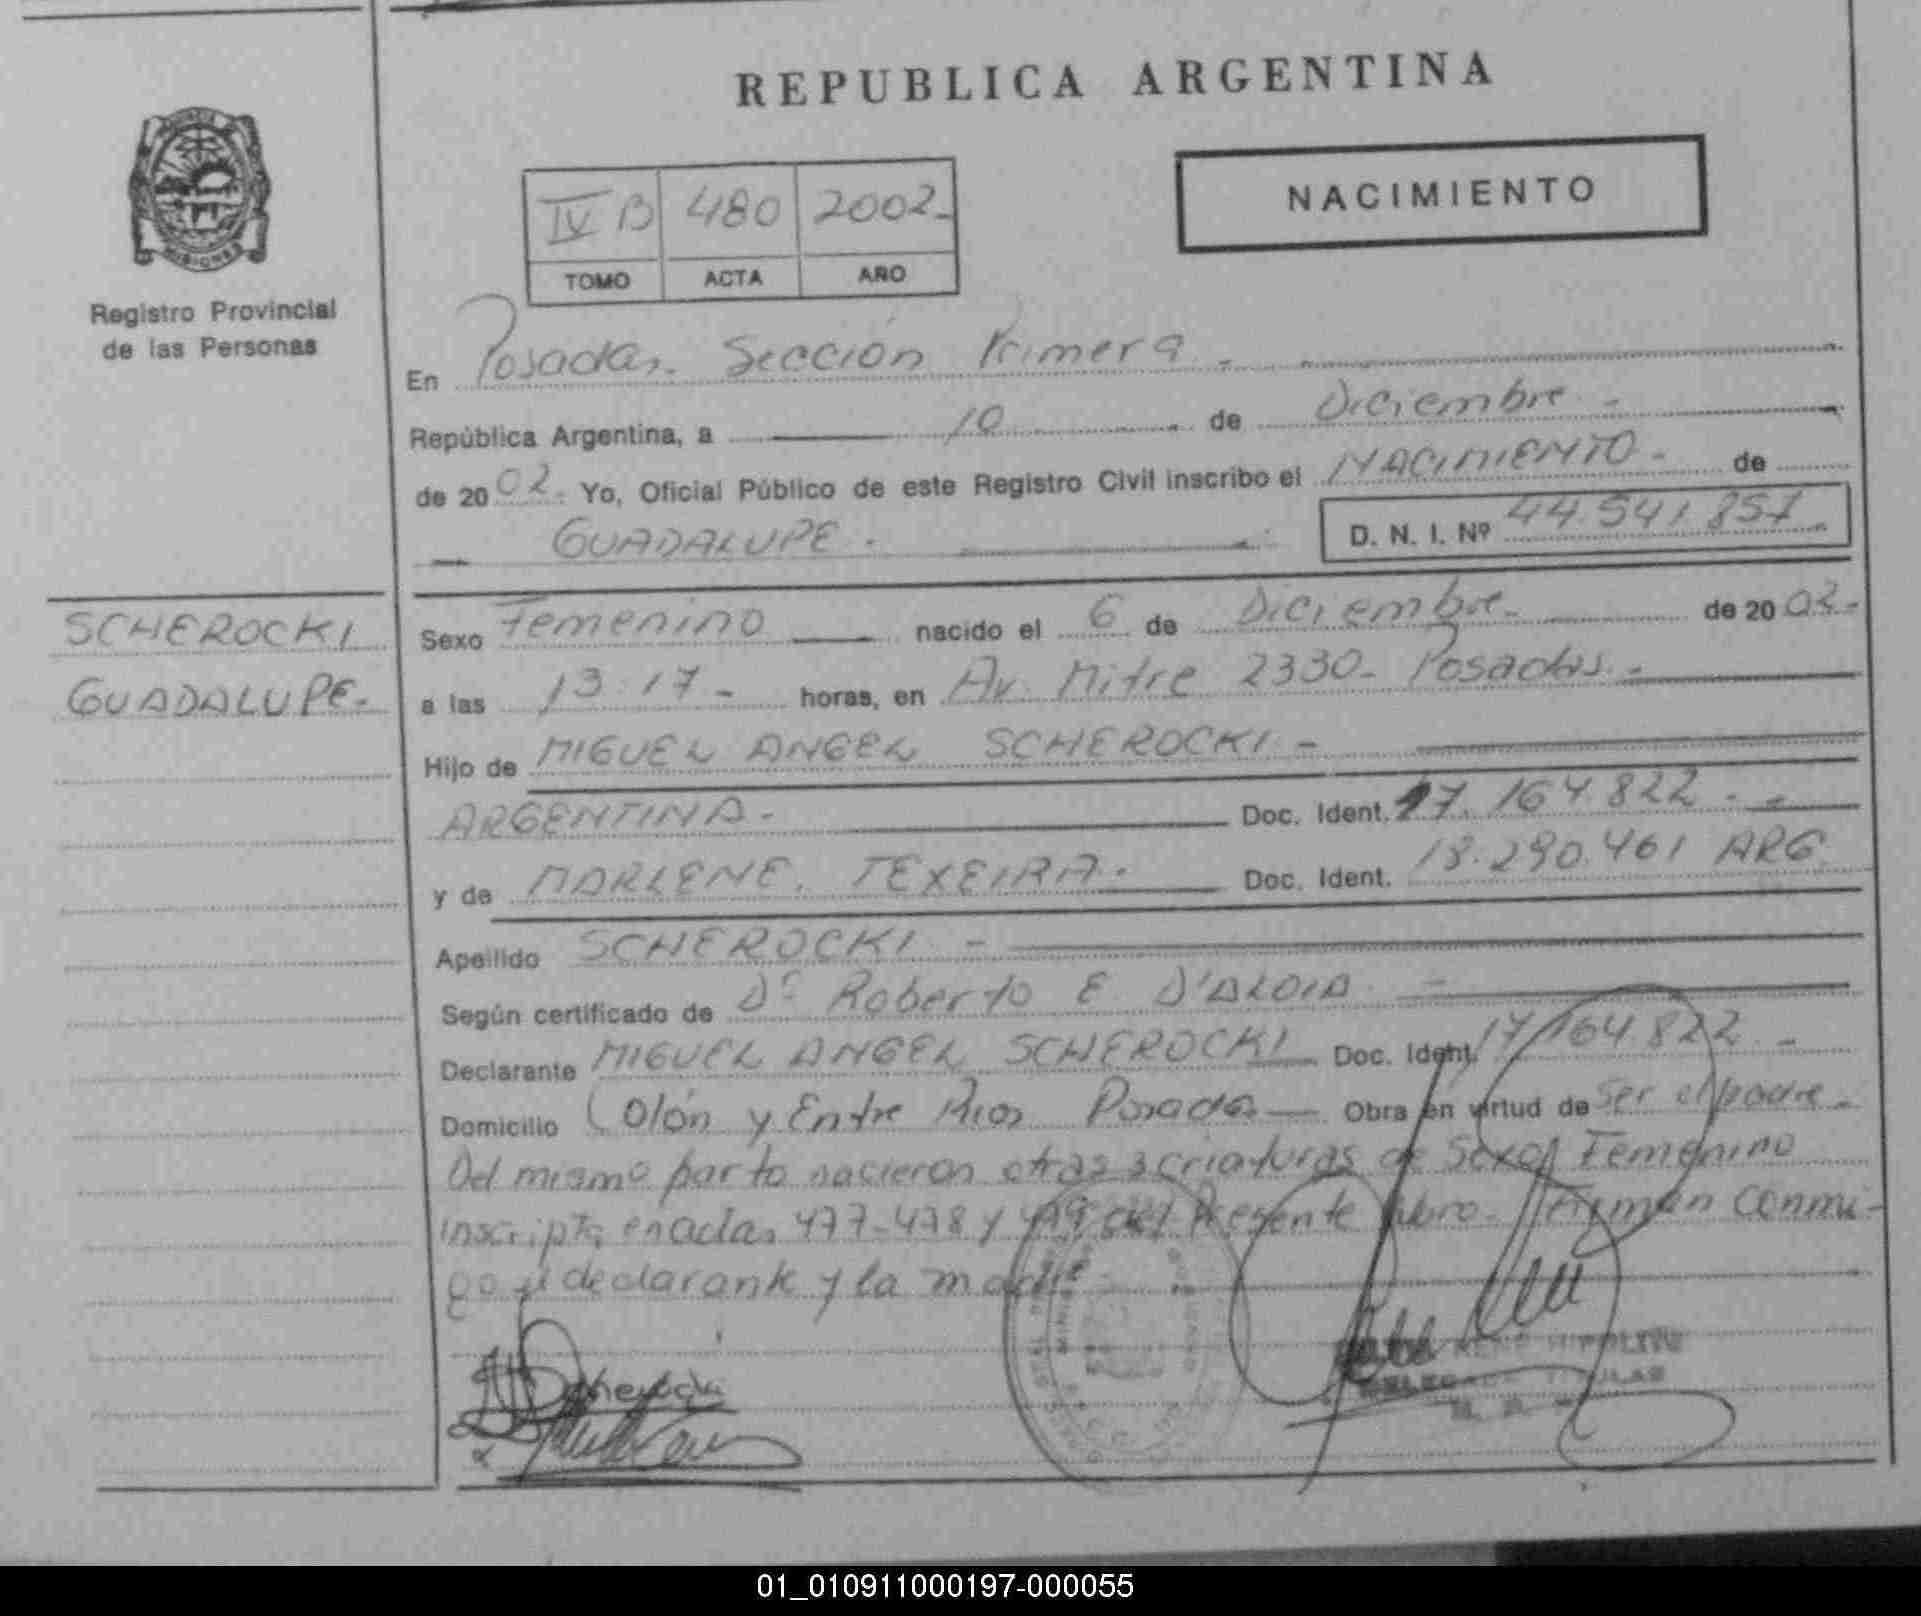 REPUBLICA ARGENTINA
NACIMIENTO
IV B 480 2002-
TOMO ACTA AÑO
MISIONES
Registro Provincial
de las Personas
En Posadas. Sección Primera.
República Argentina, a 10 de Diciembre.
de 2002. Yo, Oficial Público de este Registro Civil inscribo el NACIMIENTO. de
GUADALUPE. D. N. I. Nº 44.541.857.
SCHEROCKI
GUADALUPE.-
Sexo Femenino nacido el 6 de Diciembre. de 2002.
a las 13:17- horas, en Av. Mitre 2330- Posadas.
Hijo de MIGUEL ANGEL SCHEROCKI-
ARGENTINA- Doc. Ident. 17.164.822.-
y de MARLENE. TEXEIRA. Doc. Ident. 18.290.461 ARG.
Apellido SCHEROCKI-
Según certificado de Dr Roberto E D'ALOIA
Declarante MIGUEL ANGEL SCHEROCKI Doc. Ident. 17.164.822-
Domicilio Colón y Entre Rios Posadas Obra en virtud de ser el padre-
Del mismo parto nacieron otras 3 criaturas de Sexo Femenino
inscripta en actas 477-478 y 479 del Presente Libro. Firman conmi-
go el declarante y la madre
HIPOLITO
TITULAR
01_010911000197-000055